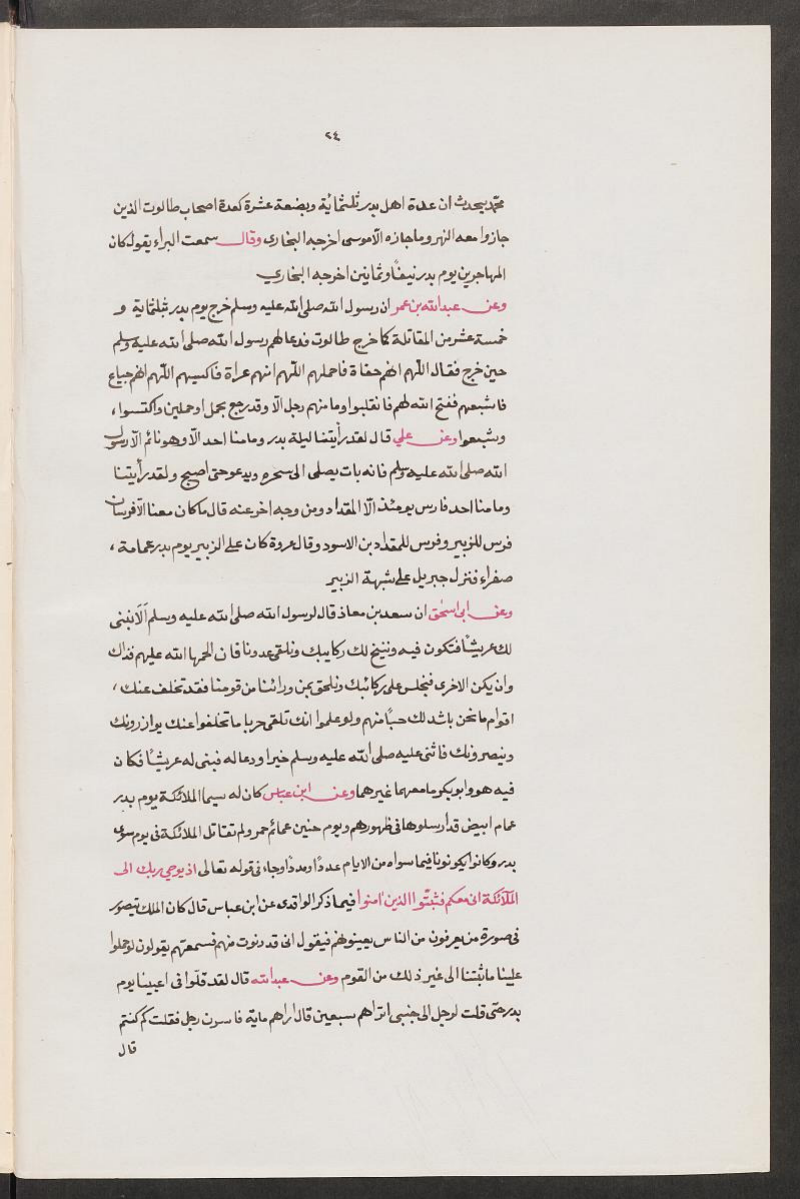 ٢٤
محمد يحدث ان عدة اهل بدر ثلثمائة وبضعة عشرة كعدة اصحاب طالوت الذين
جازوا معه النهر وما جازه الا موسى اخرجه البخارى وقال سمعت البراء يقول كان
المهاجرين يوم بدر نيفا وثمانين اخرجه البخاري
وعن عبد الله بن عمر ان رسول الله صلى الله عليه وسلم خرج يوم بدر بثلثماية و
خمسة عشر من المقاتلة كما خرج طالوت فدعا لهم رسول الله صلى الله عليه وسلم
حين خرج فقال اللهم انهم حفاة فاحملهم اللهم انهم عراة فاكسيهم اللهم انهم جياع
فاشبعهم ففتح الله لهم فانقلبوا وما منهم رجل الا وقد رجع بجمل او جملين واكتسوا،
وشبعوا وعن علي قال لقد رأيتنا ليلة بدر وما منا احد الا وهو نائم الا رسول
الله صلى الله عليه وسلم فانه بات يصلى الى سحره ويدعو حتى اصبح ولقد رأيتنا
وما منا احد فارس يومئذ الّا المقداد ومن وجه اخر عنه قال ما كان معنا الا فرسان
فرس للزبير وفرس للمقداد بن الاسود وقال عروة كان على الزبير يوم بدر عمامة،
صفراء فنزل جبريل على شبهة الزبير
وعن ابى اسحق ان سعد بن معاذ قال لرسول الله صلى الله عليه وسلم ألا نبنى
لك عريشًا فتكون فيه وننيخ لك ركايبك ونلقى عدونا فان الحمها الله عليهم فذاك
وان يكن الاخرى فنجلس على ركائبك وتلحق بمن ورائنا من قومنا فقد تخلف عنك،
اقوام ما نحن باشد لك حبا منهم ولو علموا انك تلقى حربا ما تخلفوا عنك يوازرونك
وينصرونك فاثنى عليه صلى الله عليه وسلم خيرا ودعا له فبنى له عريشًا فكان
فيه هو وابو بكر ما معهما غيرهما وعن ابن عباس كان له سيما الملائكة يوم بدر
عمام ابيض قد ارسلوها فى ظهورهم ويوم حنين عمائم حمر ولم تقاتل الملائكة فى يوم سوى
بدر وكانوا يكونونا فيما سواه من الايام عددًا ومددًا وجاء فى قوله تعالى اذ يوحي ربك الى
الملآئكة انى معكم فثبّتوا الذين امنوا فيما ذكر الواقدى عن ابن عباس قال كان الملك يتصور
فى صورة من يعرفون من الناس يعينونهم فيقول انى قد دنوت منهم فسمعتهم يقولون لو حملوا
علينا ما ثبتنا الى غير ذلك من القوم وعن عبد الله قال لقد قلّوا فى اعيينا يوم
بدر حتى قلت لرجل الى جنبى اتراهم سبعين قال اراهم ماية فاسرن رجل فقلت كم كنتم
قال